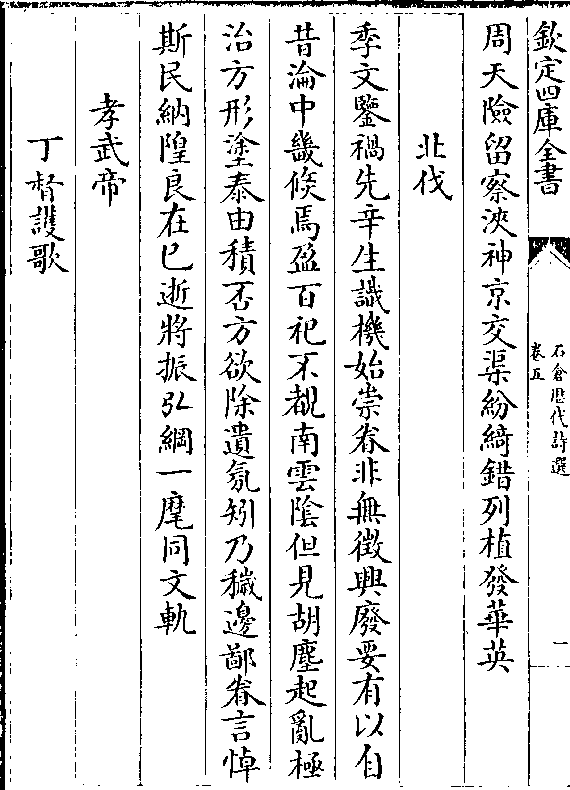 欽定四庫全書
石倉歷代詩選
卷五
一
周天險留察浹神京交渠紛綺錯列植發華英
北伐
季父鑒禍先辛生識機始崇眷非無徵興廢要有以自
昔淪中畿倐焉盈百祀不覩南雲陰但見胡塵起亂極
治方形塗泰由積否方欲除遺氛矧乃穢邊鄙眷言悼
斯民納隍良在已逝將振弘綱一麾同文軌
孝武帝
丁督護歌